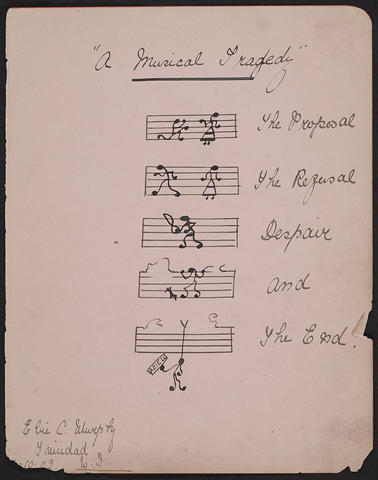 "A Musical Tragedy"
The Proposal
The Refusal
Despair
and
The End.
C. Murphy
Trinidad
W. I.